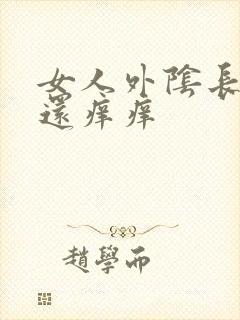 女人外陰長
還痒痒
趙學而